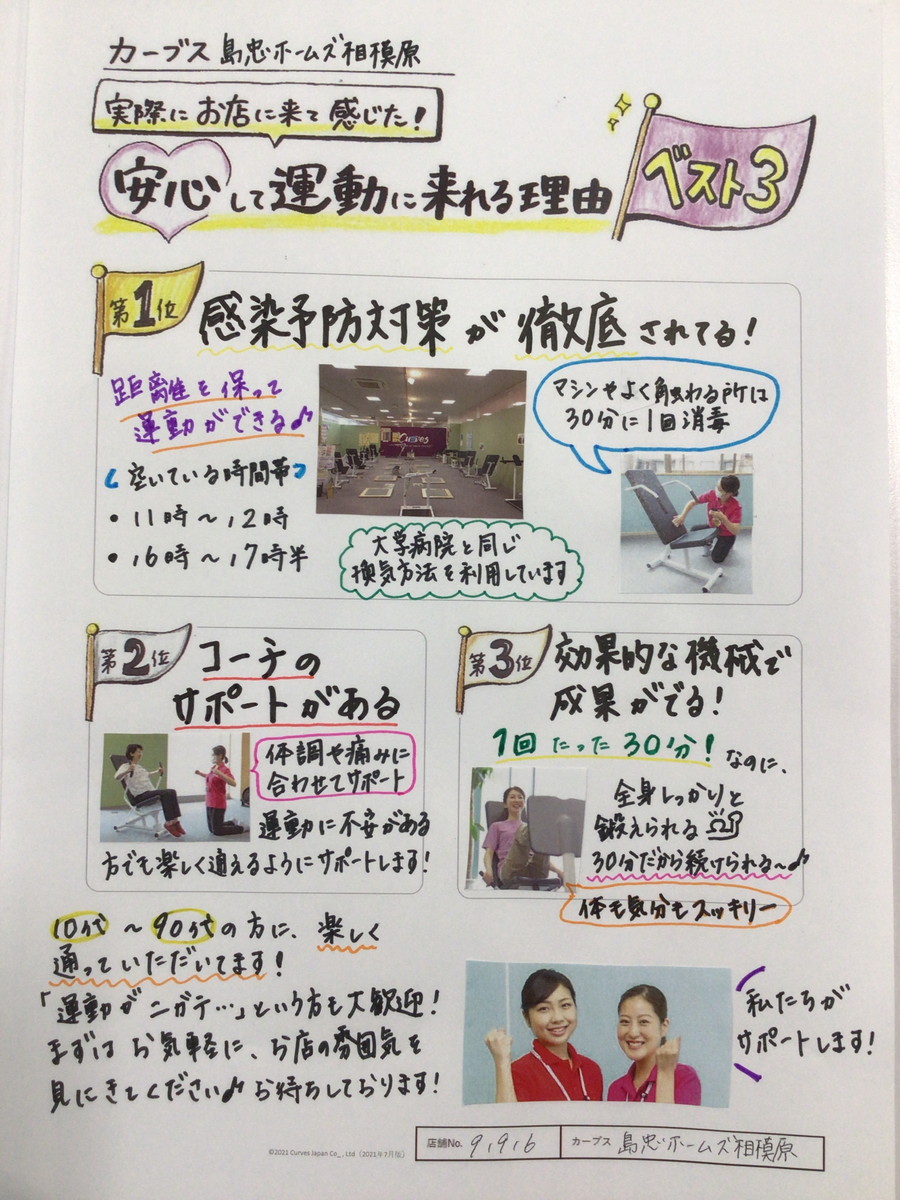 カーブス 島忠ホームズ相模原
実際にお店に来て感じた!
安心して運動に来れる理由
ベスト3
第1位
感染予防対策が徹底されてる!
距離を保って
運動ができる♪
空いている時間帯
・11時〜12時
・16時〜17時半
Curves
マシンやよく触わる所は
30分に1回消毒
大学病院と同じ
換気方法を利用しています
第2位
コーチの
サポートがある
体調や痛みに
合わせてサポート
運動に不安がある
方でも楽しく通えるようにサポートします!
第3位
効果的な機械で
成果がでる!
1回たった30分!なのに、
全身しっかりと
鍛えられる
30分だから続けられる〜♪
体も気分もスッキリー
10代〜90代の方に、楽しく
通っていただいてます!
「運動がニガテ…」という方も大歓迎!
まずはお気軽に、お店の雰囲気を
見にきてください♪お待ちしております!
私たちが
サポートします!
店舗No. 9196 カーブス 島忠ホームズ相模原
©2021 Curves Japan Co., Ltd (2021年7月版)